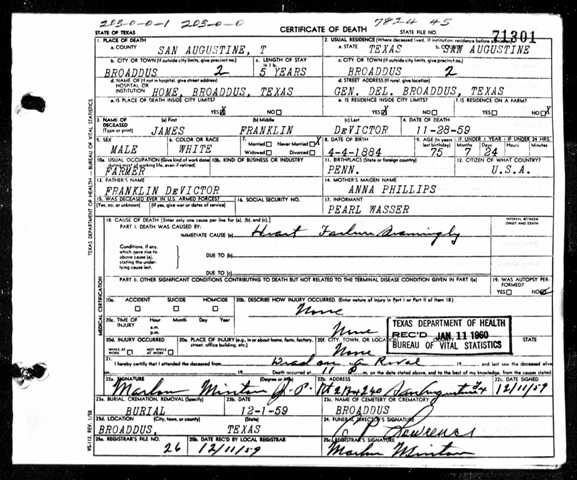 203-0-0-1 203-0-0 7824 45
STATE OF TEXAS CERTIFICATE OF DEATH STATE FILE NO. 71301
1. PLACE OF DEATH 2. USUAL RESIDENCE (Where deceased lived. If institution: residence before
a. COUNTY SAN AUGUSTINE, T a. STATE TEXAS b. SAN AUGUSTINE
b. CITY OR TOWN (If outside city limits, give precinct no.) c. LENGTH OF STAY c. CITY OR TOWN (If outside city limits, give precinct no.)
BROADDUS 2 5 YEARS BROADDUS 2
d. NAME OF (If not in hospital, give street address) d. STREET ADDRESS (If rural, give location)
HOSPITAL OR INSTITUTION HOME, BROADDUS, TEXAS GEN. DEL. BROADDUS, TEXAS
e. IS PLACE OF DEATH INSIDE CITY LIMITS? e. IS RESIDENCE INSIDE CITY LIMITS? f. IS RESIDENCE ON A FARM?
YES NO YES NO YES NO
3. NAME OF DECEASED (a) First (b) Middle (c) Last 4. DATE OF DEATH
(Type or print) JAMES FRANKLIN DeVICTOR 11-28-59
5. SEX 6. COLOR OR RACE 7. Married Never Married 8. DATE OF BIRTH 9. AGE (In years last birthday) IF UNDER 1 YEAR IF UNDER 24 HRS.
MALE WHITE Widowed Divorced 4-4-1884 75 Months 7 Days 24 Hours Min.
10a. USUAL OCCUPATION (Give kind of work done 10b. KIND OF BUSINESS OR INDUSTRY 11. BIRTHPLACE (State or foreign country) 12. CITIZEN OF WHAT COUNTRY?
FARMER PENN. U.S.A.
13. FATHER'S NAME 14. MOTHER'S MAIDEN NAME
FRANKLIN DeVICTOR ANNA PHILLIPS
15. WAS DECEASED EVER IN U.S. ARMED FORCES? 16. SOCIAL SECURITY NO. 17. INFORMANT
(Yes, no, or unknown) (If yes, give war or dates of service) PEARL WASSER
18. CAUSE OF DEATH (Enter only one cause per line for (a), (b), and (c).) INTERVAL BETWEEN ONSET AND DEATH
PART I. DEATH WAS CAUSED BY:
IMMEDIATE CAUSE (a) Heart Failure Seamingly
Conditions, if any, which gave rise to above cause (a), stating the underlying cause last. DUE TO (b)
DUE TO (c)
PART II. OTHER SIGNIFICANT CONDITIONS CONTRIBUTING TO DEATH BUT NOT RELATED TO THE TERMINAL DISEASE CONDITION GIVEN IN PART I(a) 19. WAS AUTOPSY PERFORMED?
YES NO
20a. ACCIDENT SUICIDE HOMICIDE 20b. DESCRIBE HOW INJURY OCCURRED. (Enter nature of injury in Part I or Part II of item 18.)
None
20c. TIME OF INJURY Hour Month Day Year
a.m. p.m. None
TEXAS DEPARTMENT OF HEALTH
REC'D JAN 11 1960
BUREAU OF VITAL STATISTICS
20d. INJURY OCCURRED 20e. PLACE OF INJURY (e.g., in or about home, farm, factory, street, office building, etc.) 20f. CITY, TOWN, OR LOCATION STATE
WHILE AT WORK NOT WHILE AT WORK None
I hereby certify that I attended the deceased last saw the deceased alive
Death occurred at 11 P m. on the date stated above, and to the best of my knowledge, from the causes stated.
22a. SIGNATURE (Degree or title) 22b. ADDRESS 22c. DATE SIGNED
Marlon Minton J.P. Rt 2 Box 240 San Augustine Tx 12/11/59
23a. BURIAL, CREMATION, REMOVAL (Specify) 23b. DATE 23c. NAME OF CEMETERY OR CREMATORY
BURIAL 12-1-59 BROADDUS
23d. LOCATION (City, town, or county) (State) 24. FUNERAL DIRECTOR'S SIGNATURE
BROADDUS, TEXAS
25a. REGISTRAR'S FILE NO. 25b. DATE REC'D BY LOCAL REGISTRAR 25c. REGISTRAR'S SIGNATURE
26 12/11/59 Marlon Minton
TEXAS DEPARTMENT OF HEALTH — BUREAU OF VITAL STATISTICS
MEDICAL CERTIFICATION
VS-112 REV. 1/58